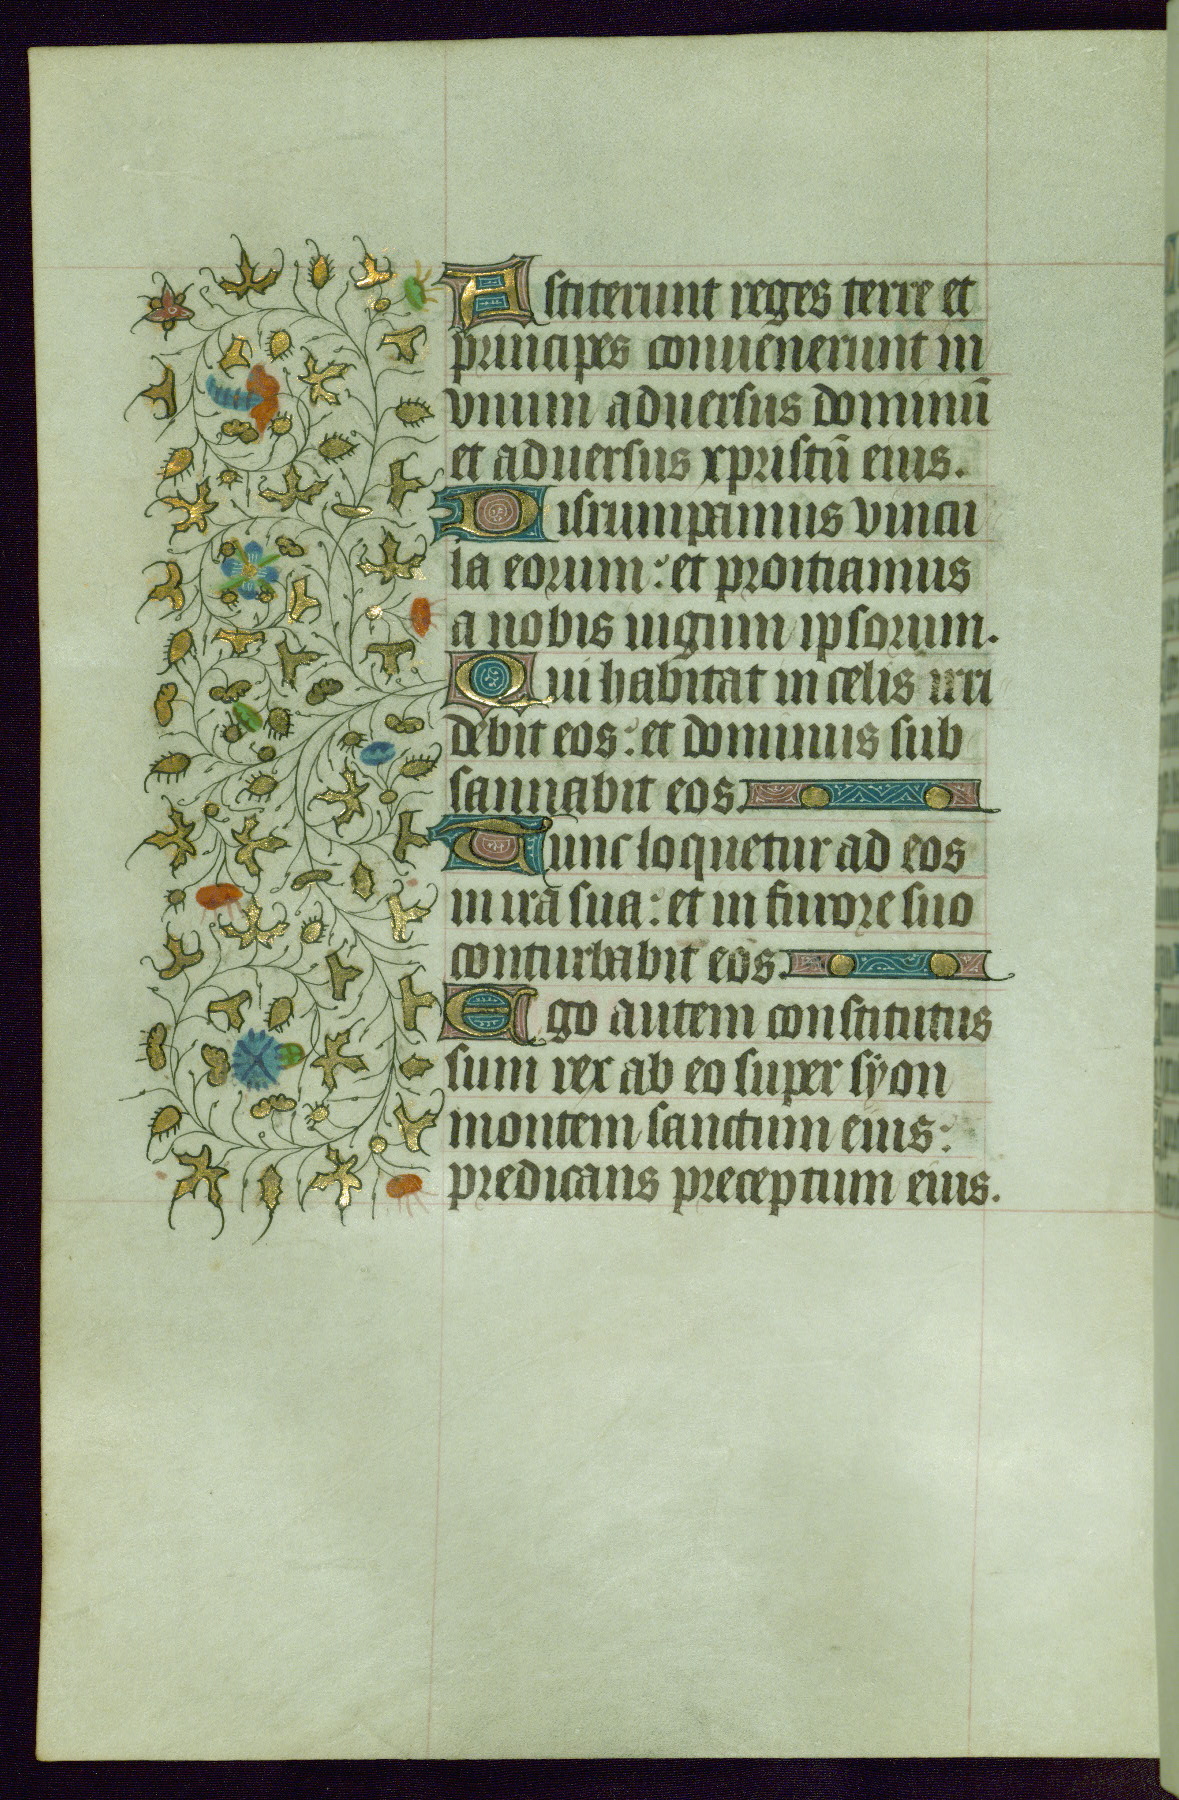 Astiterunt reges terre et
principes convenerunt in
vnum aduersus dominū
et aduersus xpristū eius.
Disrumpamus vincu
la eorum: et proitiamus
a nobis iugum ipsorum.
Qui habitat in celis irri
debit eos: et dominus sub
sannabit eos.
Tunc loquetur ad eos
in ira sua: et in furore suo
conturbabit eos.
Ego autem constitutus
sum rex ab eo super syon
montem sanctum eius:
predicans preceptum eius.